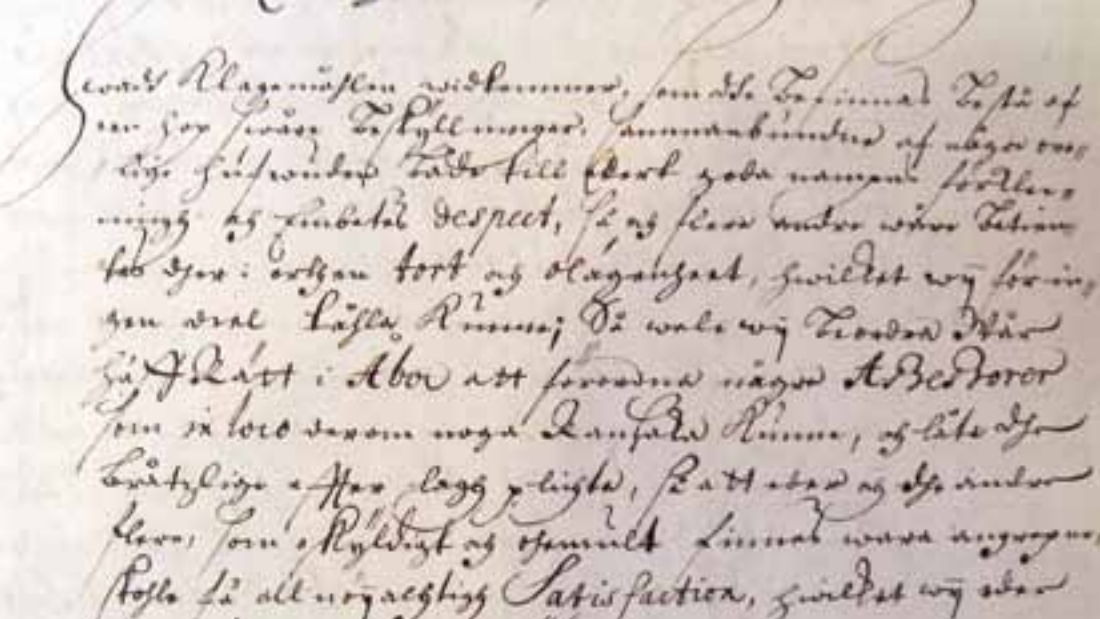 hwadh Klagemåhlen widkommer, som dhe befinnas bestå af
een hop swåre beskyllninger, sammanbundne af någre ove
lige hufwuden både till Edert goda nampns förkle
ningh och Embetes despect, så och flere andre wåre betien
tes dher i orthen tort och olägenheet, hwilket wij för in
gen deel tåhla kunne; Så wele wij beordra Wår
HåffRätt i Åbo att förordna någre Assessorer
som in loco derom noga Ransaka kunne, och låta dhe
bråtzlige effter lagh plichta, så att eder och dhe andre
flere, som oskyldigt och ohemult finnas wara angrepne,
skohle få all nöyachtigh Satisfaction, hwilket wij eder